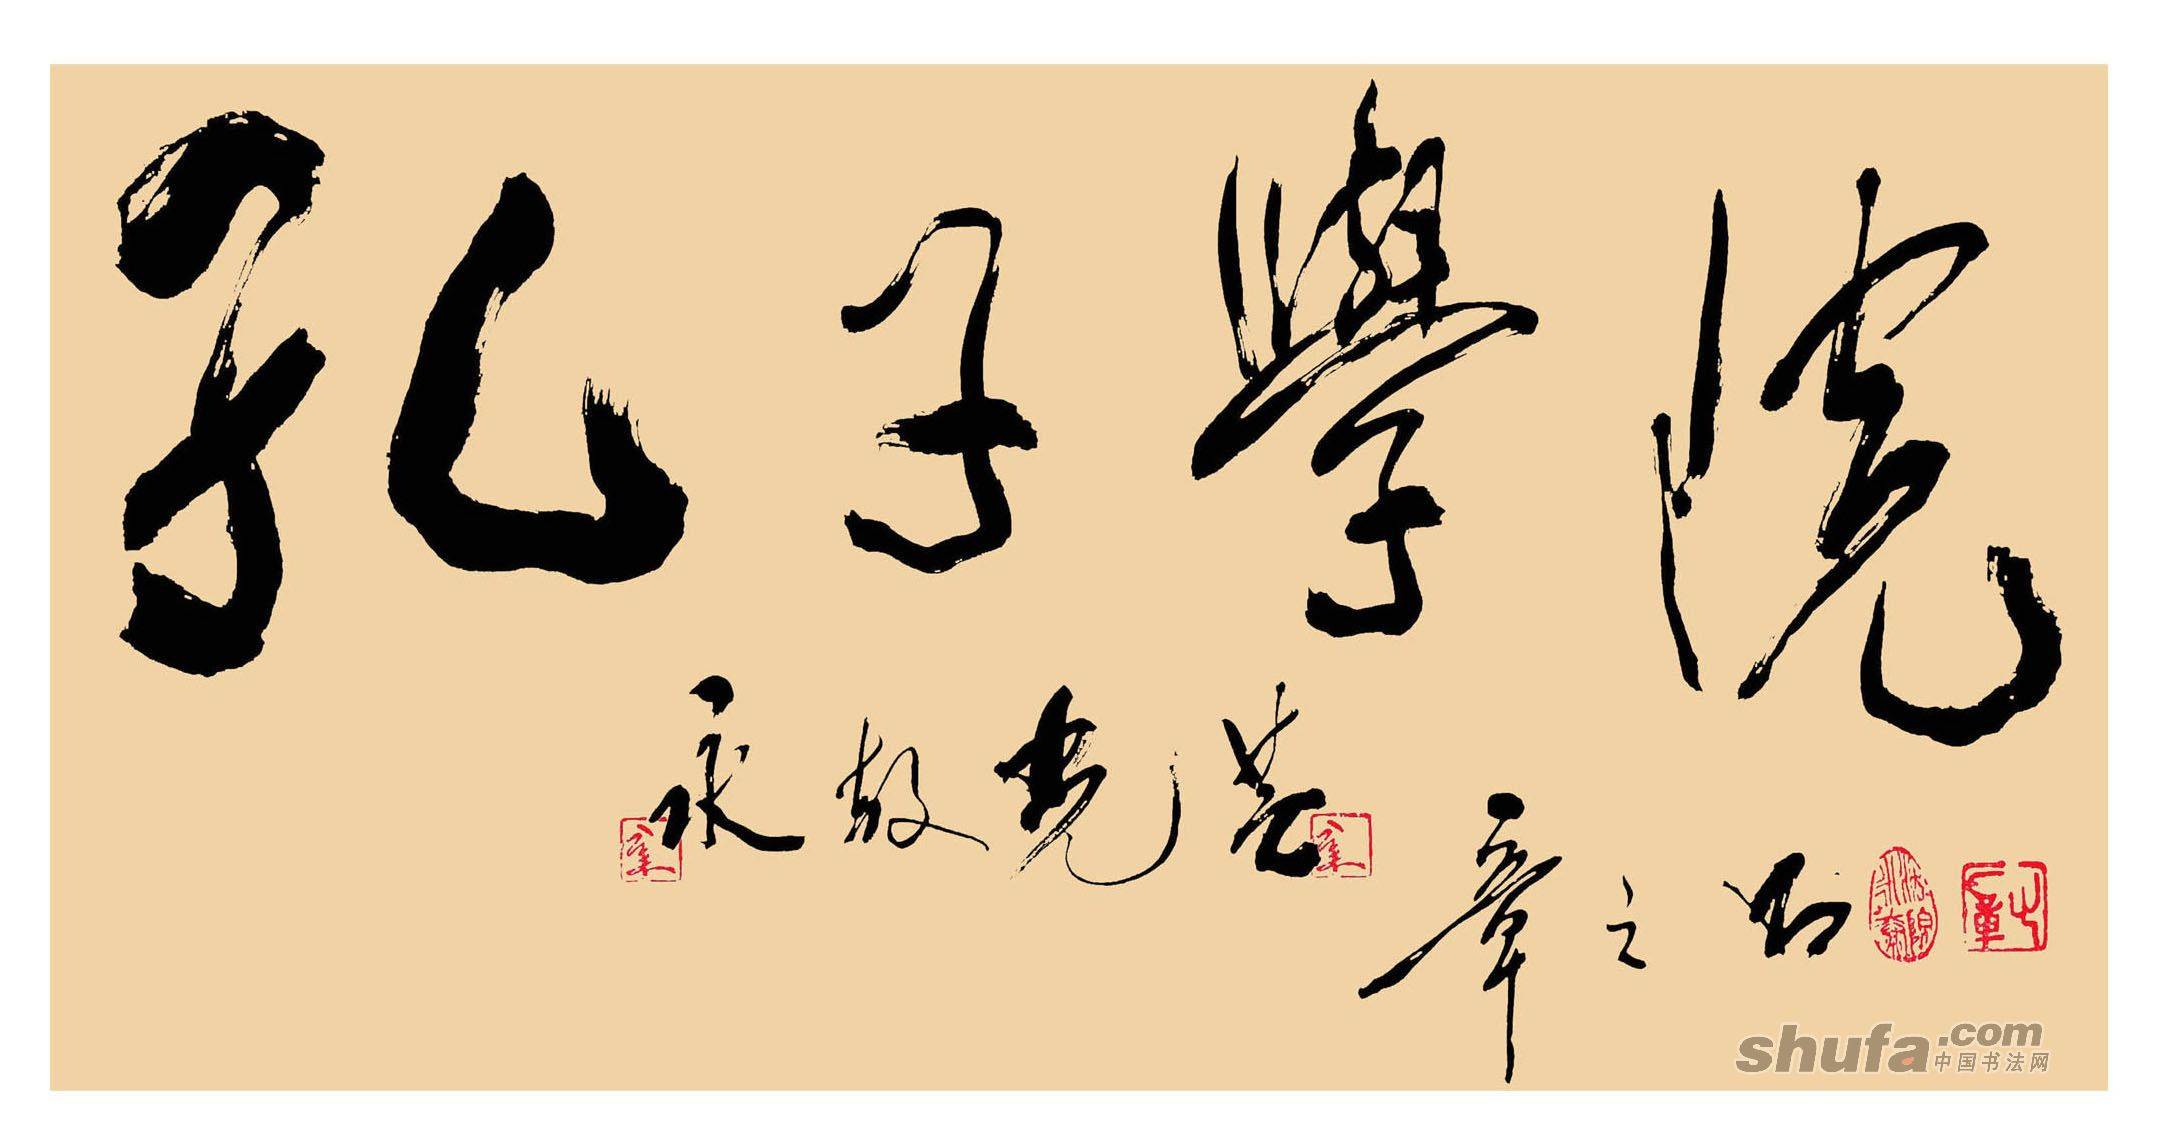 孔子學院
永放光芒
章之
shufa.com
中国书法网